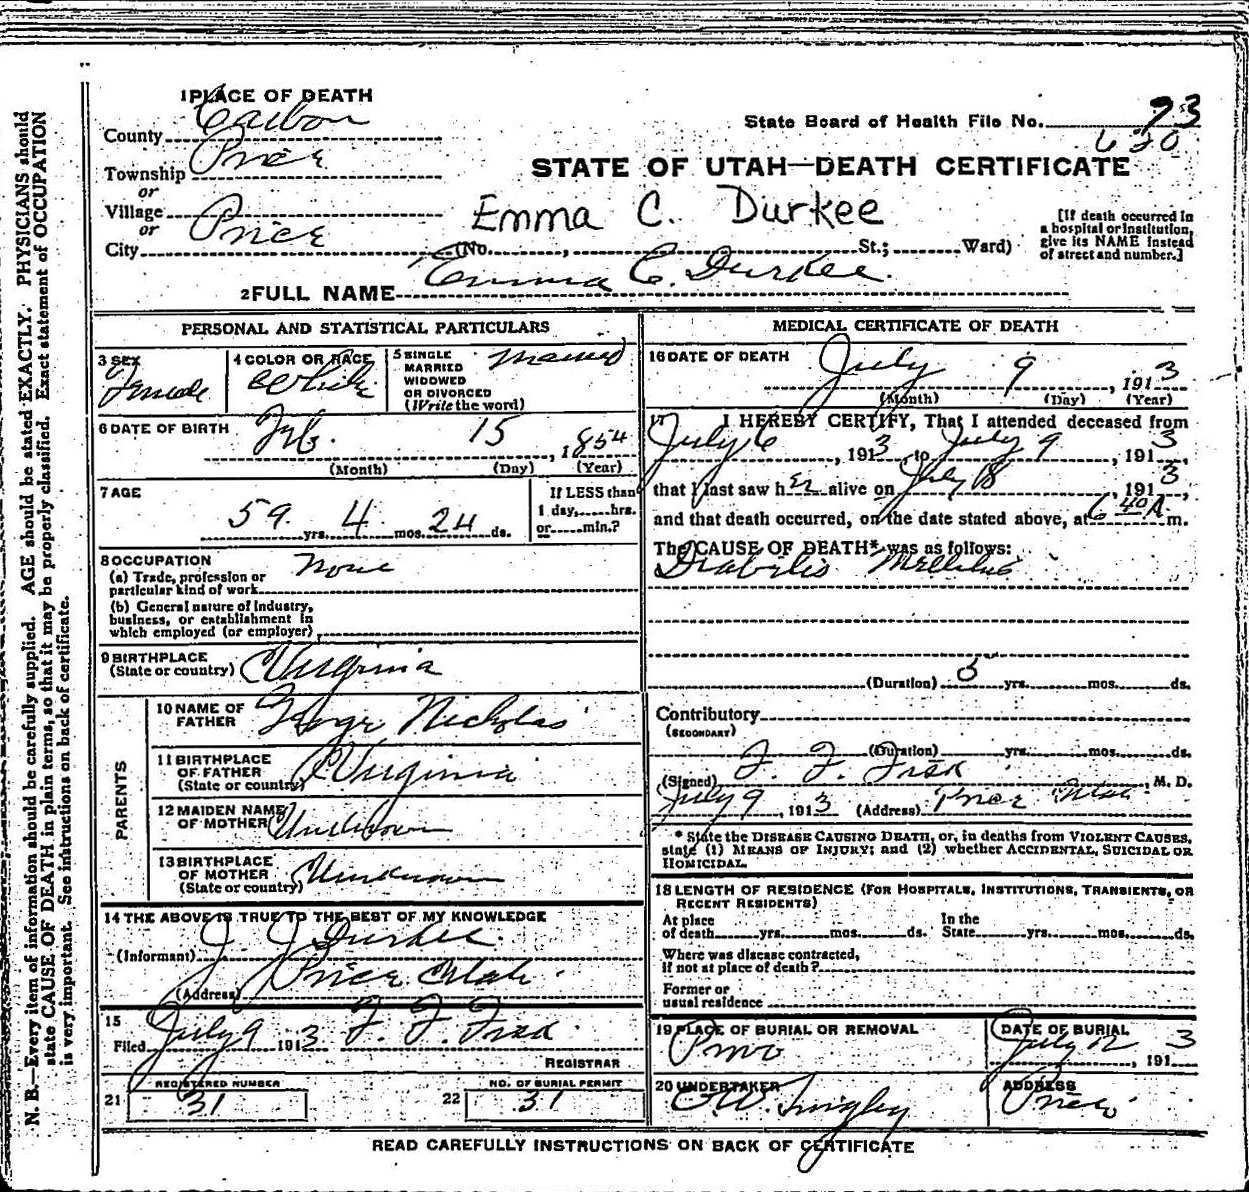 N. B.—Every item of information should be carefully supplied. AGE should be stated EXACTLY. PHYSICIANS should
state CAUSE OF DEATH in plain terms, so that it may be properly classified. Exact statement of OCCUPATION
is very important. See instructions on back of certificate.
1 PLACE OF DEATH
County Carbon
Township Price
or
Village
or
City Price
State Board of Health File No. 93
630
STATE OF UTAH—DEATH CERTIFICATE
Emma C. Durkee
(No. , St.; Ward)
[If death occurred in
a hospital or institution,
give its NAME instead
of street and number.]
2 FULL NAME Emma C. Durkee.
PERSONAL AND STATISTICAL PARTICULARS
3 SEX Female
4 COLOR OR RACE White
5 SINGLE
MARRIED
WIDOWED
OR DIVORCED
(Write the word)
Married
6 DATE OF BIRTH Feb. 15, 1854
(Month) (Day) (Year)
7 AGE
59 yrs. 4 mos. 24 ds.
If LESS than
1 day, hrs.
or min.?
8 OCCUPATION
(a) Trade, profession or
particular kind of work None
(b) General nature of industry,
business, or establishment in
which employed (or employer)
9 BIRTHPLACE
(State or country) Virginia
PARENTS
10 NAME OF
FATHER George Nicholas
11 BIRTHPLACE
OF FATHER
(State or country) Virginia
12 MAIDEN NAME
OF MOTHER Unknown
13 BIRTHPLACE
OF MOTHER
(State or country) Unknown
14 THE ABOVE IS TRUE TO THE BEST OF MY KNOWLEDGE
(Informant) J. J. Durkee.
(Address) Price Utah.
15
Filed July 9 1913 F. F. Fisk
REGISTRAR
21 REGISTERED NUMBER
31
22 NO. OF BURIAL PERMIT
31
MEDICAL CERTIFICATE OF DEATH
16 DATE OF DEATH
July 9, 1913
(Month) (Day) (Year)
17 I HEREBY CERTIFY, That I attended deceased from
July 6, 1913 to July 9, 1913,
that I last saw her alive on July 8, 1913,
and that death occurred, on the date stated above, at 6 40 A. m.
The CAUSE OF DEATH* was as follows:
Diabetis Mellitus
(Duration) 5 yrs. mos. ds.
Contributory
(SECONDARY)
(Duration) yrs. mos. ds.
(Signed) F. F. Fisk, M. D.
July 9, 1913 (Address) Price Utah
* State the DISEASE CAUSING DEATH, or, in deaths from VIOLENT CAUSES,
state (1) MEANS OF INJURY; and (2) whether ACCIDENTAL, SUICIDAL OR
HOMICIDAL.
18 LENGTH OF RESIDENCE (FOR HOSPITALS, INSTITUTIONS, TRANSIENTS, OR
RECENT RESIDENTS)
At place
of death yrs. mos. ds.
In the
State yrs. mos. ds.
Where was disease contracted,
if not at place of death?
Former or
usual residence
19 PLACE OF BURIAL OR REMOVAL
Provo
DATE OF BURIAL
July 12, 1913
20 UNDERTAKER
Tingley
ADDRESS
Price
READ CAREFULLY INSTRUCTIONS ON BACK OF CERTIFICATE